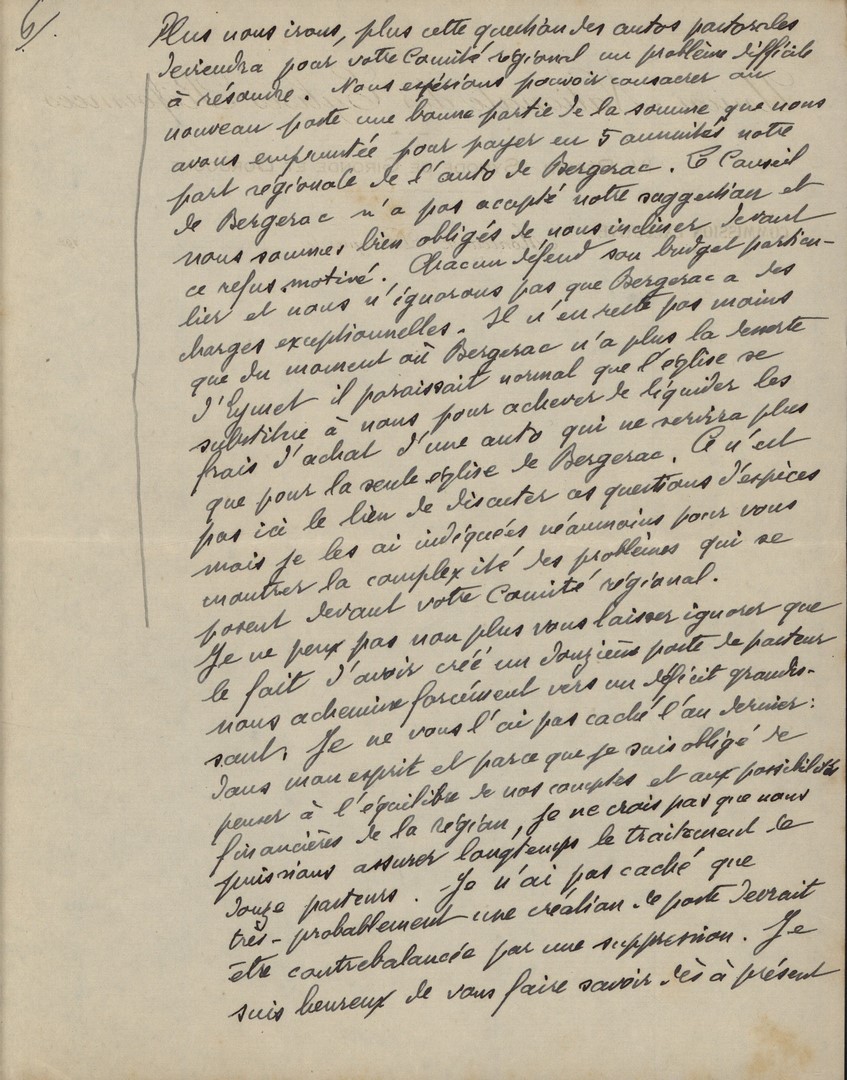 6/.
Plus nous irons, plus cette question des autos pastorales
deviendra pour votre Comité régional un problème difficile
à résoudre. Nous espérions pouvoir consacrer au
nouveau poste une bonne partie de la somme que nous
avons empruntée pour payer en 5 annuités notre
part régionale de l'auto de Bergerac. Le Conseil
de Bergerac n'a pas accepté notre suggestion et
nous sommes bien obligés de nous incliner devant
ce refus motivé. Chacun défend son budget particu-
lier et nous n'ignorons pas que Bergerac a des
charges exceptionnelles. Il n'en reste pas moins
que du moment où Bergerac n'a plus la desserte
d'Eymet il paraissait normal que l'église se
substitue à nous pour achever de liquider les
frais d'achat d'une auto qui ne servira plus
que pour la seule église de Bergerac. Ce n'est
pas ici le lieu de discuter ces questions d'espèces
mais je les ai indiquées néanmoins pour vous
montrer la complexité des problèmes qui se
posent devant votre Comité régional.
Je ne peux pas non plus vous laisser ignorer que
le fait d'avoir créé un douzième poste de pasteur
nous achemine forcément vers un déficit grandis-
sant. Je ne vous l'ai pas caché l'an dernier:
dans mon esprit et parce que je suis obligé de
penser à l'équilibre de nos comptes et aux possibilités
financières de la région, je ne crois pas que nous
puissions assurer longtemps le traitement de
douze pasteurs. Je n'ai pas caché que
très-probablement une création de poste devrait
être contrebalancée par une suppression. Je
suis heureux de vous faire savoir dès à présent